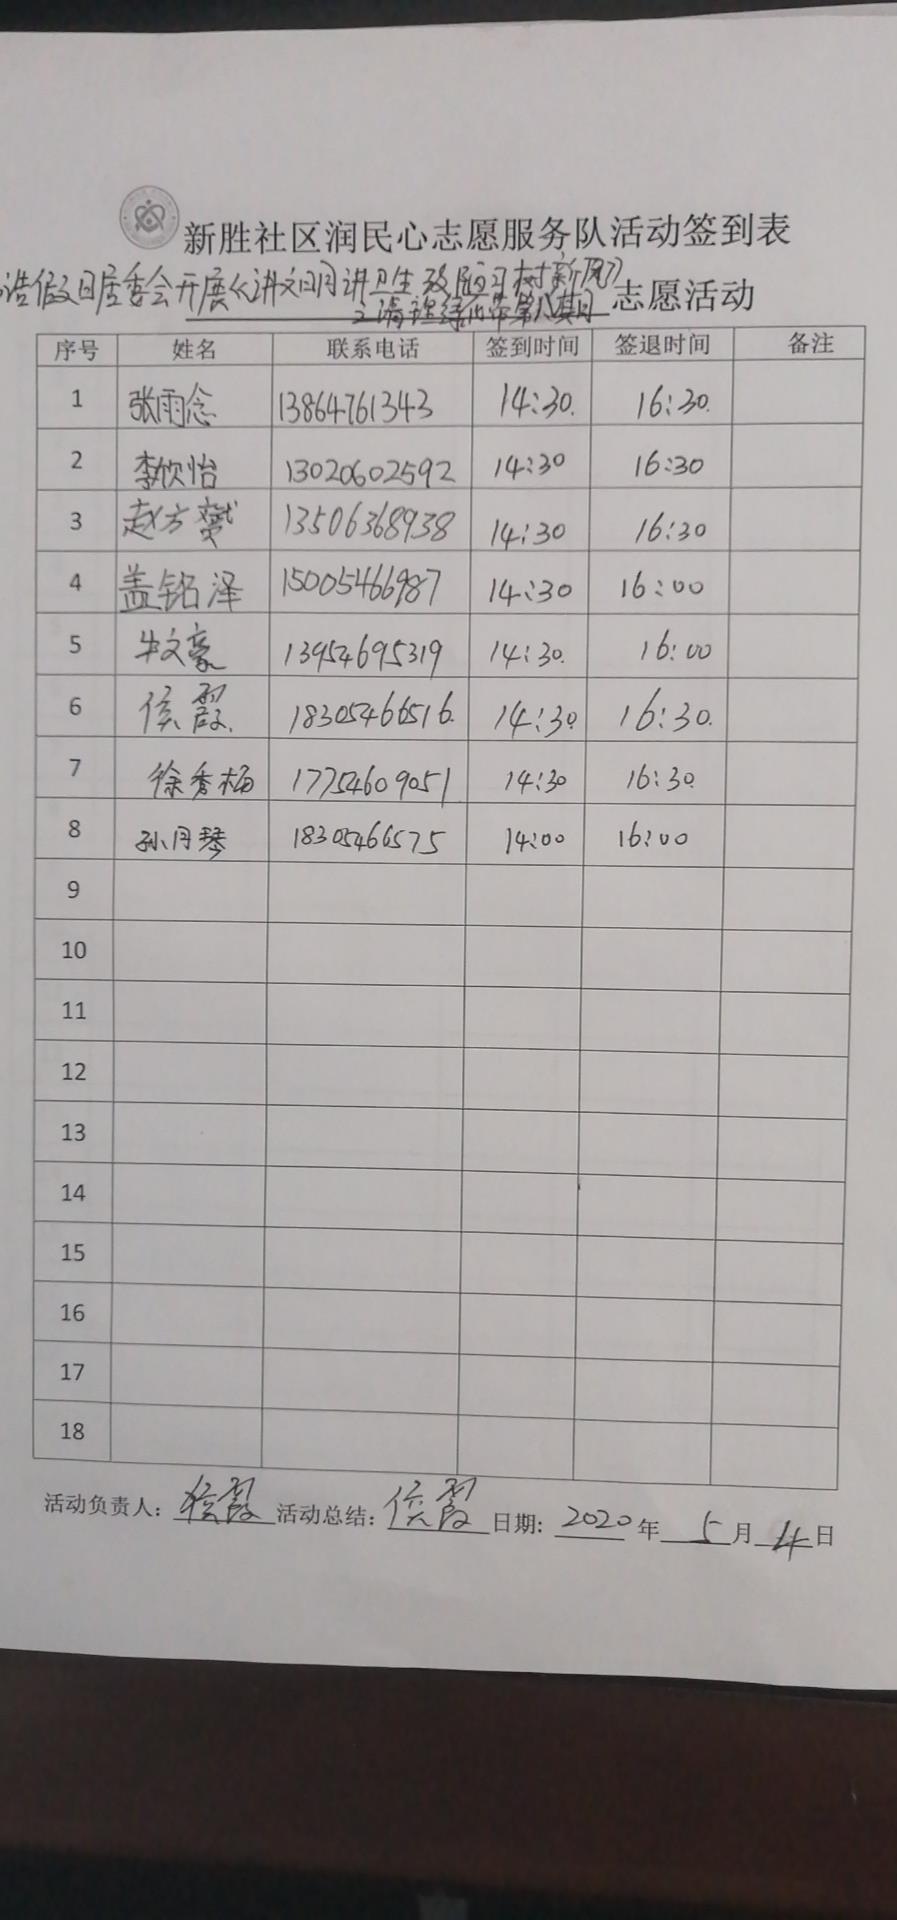 新胜社区润民心志愿服务队活动签到表
浩假日居委会开展《讲文明讲卫生改陋习树新风》
之清理绿化带第八期 志愿活动
序号 姓名 联系电话 签到时间 签退时间 备注
1 张雨念 13864761343 14:30. 16:30.
2 李欣怡 13020602592 14:30 16:30
3 赵方 13506368938 14:30 16:30
4 盖铭泽 15005466987 14:30 16:00
5 牛文豪 13954695319 14:30. 16:00
6 侯霞. 18305466516. 14:30 16:30.
7 徐秀梅 17754609051 14:30 16:30.
8 孙月琴 18305466575 14:00 16:00
9
10
11
12
13
14
15
16
17
18
活动负责人: 侯霞 活动总结: 侯霞 日期: 2020 年 5 月 4 日